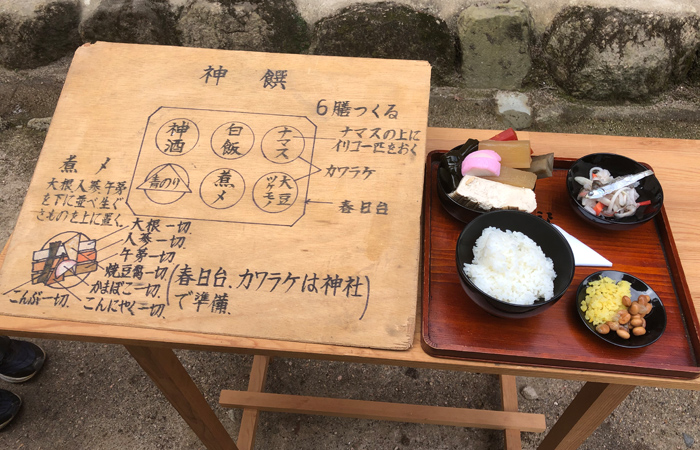 神饌
6膳つくる
神酒
白飯
ナマス
ナマスの上に
イリコ一匹をおく
カワラケ
青のり
煮〆
大豆
ツケモノ
春日台
煮〆
大根人蔘午蒡
を下に並べ生ぐ
さものを上に置く。
大根一切.
人蔘一切.
午蒡一切.
焼豆腐一切.
かまぼこ一切.
こんにゃく一切.
こんぶ一切.
(春日台、カワラケは神社
で準備.)